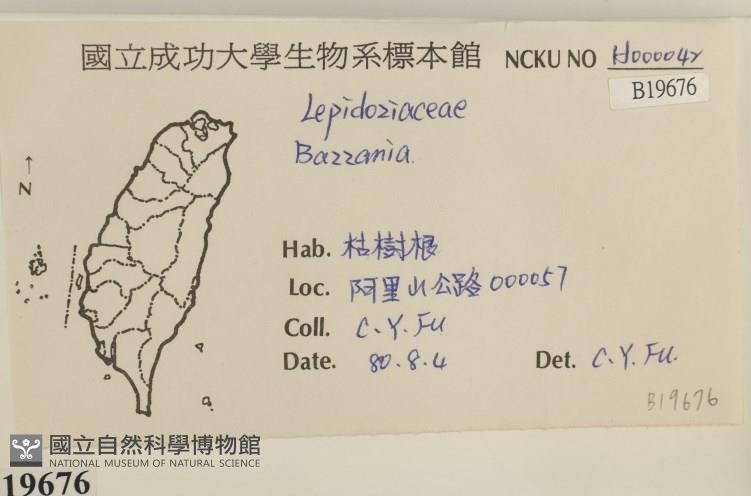 國立成功大學生物系標本館 NCKU NO H000042
B19676
Lepidoziaceae
Bazzania.
N
Hab. 枯樹根
Loc. 阿里山公路 000057
Coll. C.Y.Fu
Date. 80.8.4 Det. C.Y.Fu.
B19676
國立自然科學博物館
NATIONAL MUSEUM OF NATURAL SCIENCE
19676